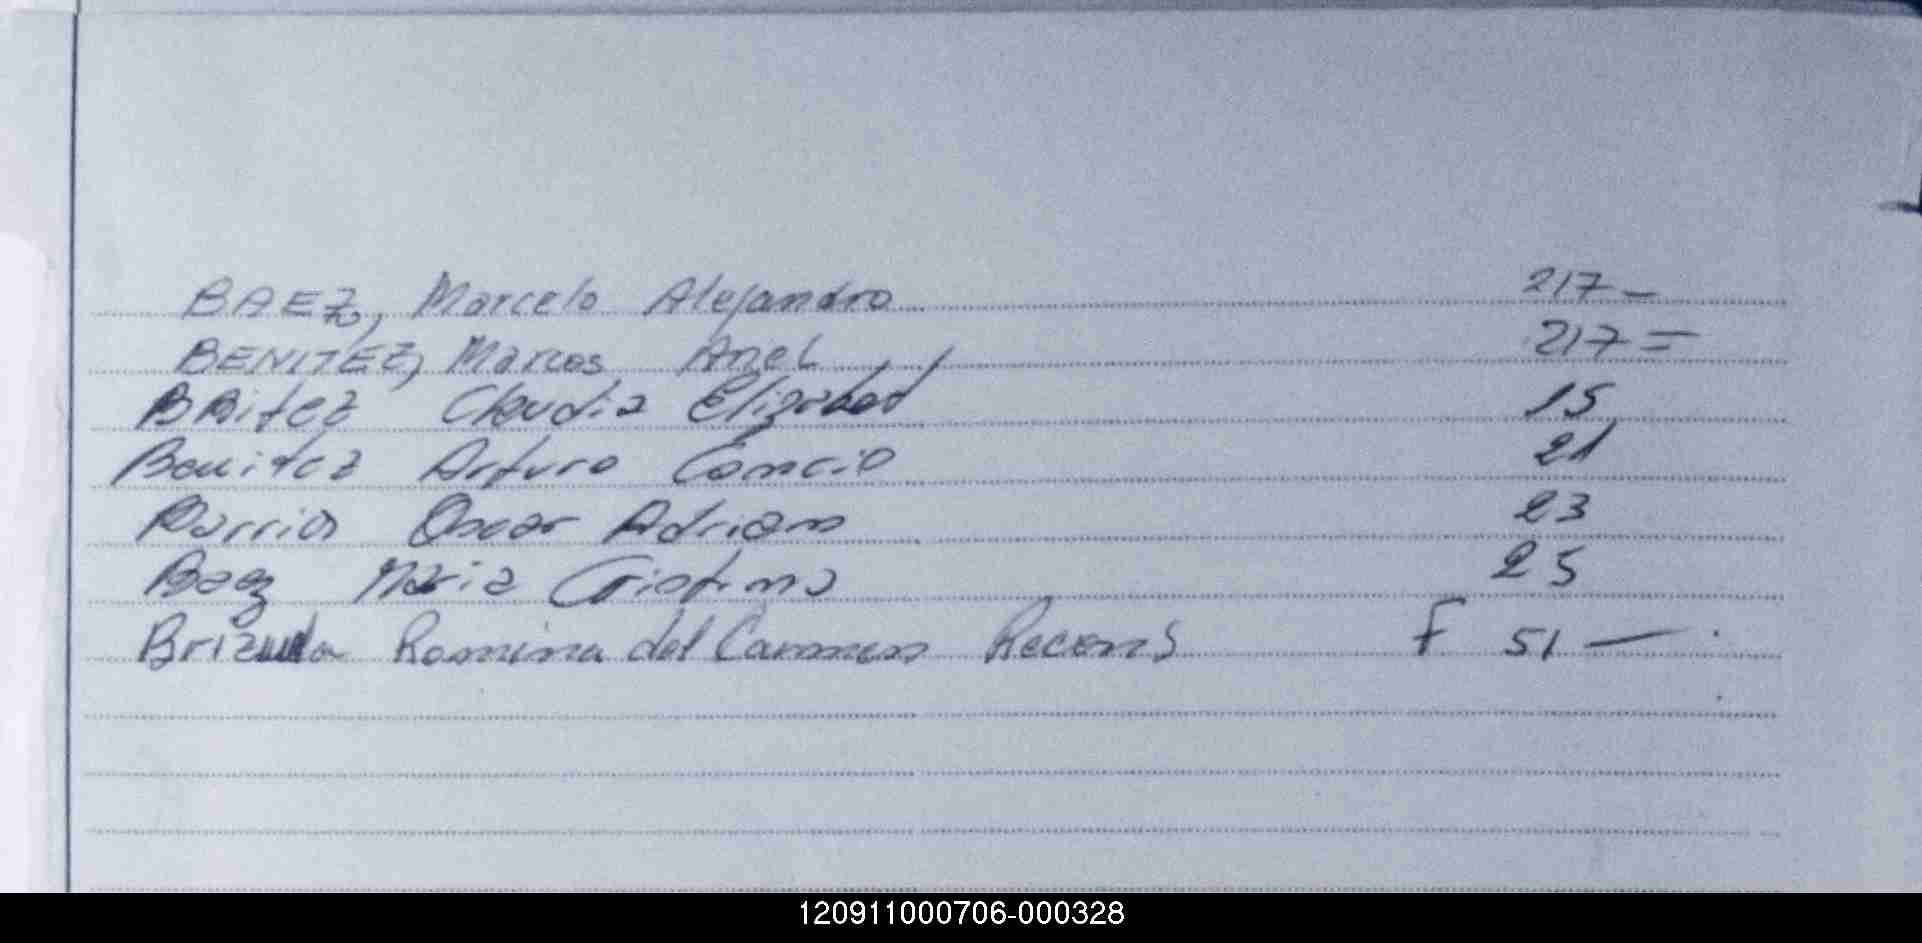 BAEZ, Marcelo Alejandro 217 —
BENITEZ, Marcos Ariel 217 =
BRitez Claudia Elizabet 15
Benitez Arturo 21
Barrios Oscar Adrian 23
Baez Maria Cristina 25
Brizuela Romina del Carmen F 51 —
120911000706-000328